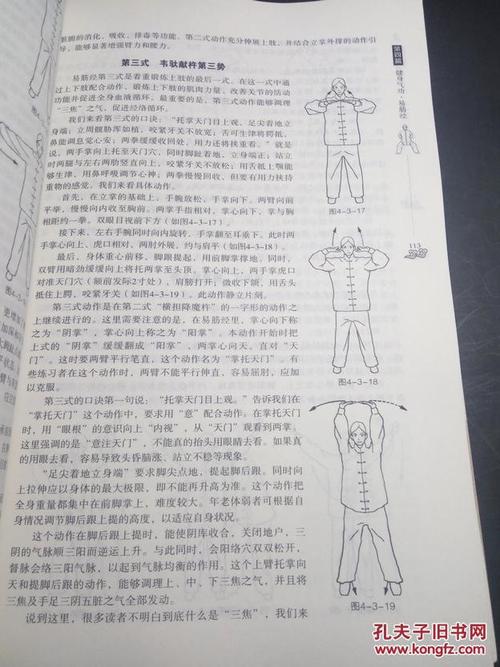 脏腑的消化、吸收、排毒等功能。第二式动作充分伸展上肢，并结合立掌外撑的动作引
导，能够显著增强臂力和腰力。
第三式 韦驮献杵第三势
易筋经第三式是着重锻炼上肢的最后一式。在这一式中通
过上下肢配合动作，锻炼上下肢的肌肉力量、改善关节的活动
功能并促进全身血液循环。最重要的是，第三式动作能够调理
“三焦”之气，促进经络循环。
我们来看第三式的口诀：“托掌天门目上观，足尖着地立
身端；立周髋胁浑如植，咬紧牙关不放宽；舌可生津将腭抵，
鼻能调息觉心安；两拳缓缓收回处，用力还将挟重看。”就是
说，两手掌向上托至天门穴，同时脚趾着地，立身端正；站立
时两腿与左右两肋竖直向上，咬紧牙关不放松；用舌抵上颚能
够生津，用鼻呼吸调节心神；两拳慢慢回收，但要在用力挟持
重物的感觉。我们来看具体动作。
首先，在立掌的基础上，手腕放松，手掌向下，两臂向前
平举，慢慢向内收至胸前。两手手指相对，掌心向下，掌与胸
相距约一拳，双眼目视前下方（如图4-3-17）。
接下来，左右手腕同时向内旋转，手掌翻至耳垂下。此时两
手掌心向上、虎口相对，两肘外展，约与肩平（如图4-3-18）。
最后，身体重心前移，脚跟提起，用前脚掌撑地，同时，
双臂用暗劲缓缓向上将托两掌至头顶。掌心向上，两手掌虎口
对准天门穴（额前发际2寸处），肩膀打开；微收下颌，用舌头
抵住上腭，咬紧牙关（如图4-3-19）。此动作静立片刻。
第三式动作是在第二式“横担降魔杵”的一字形的动作之
上继续进行的。这里需要注意的是，在易筋经里，掌心向下称
之为“阴掌”，掌心向上称之为“阳掌”。本动作开始时把
上式的“阴掌”缓缓翻成“阳掌”，两掌心向天。直对“天
门”。这时要两臂平行笔直，这个动作名为“掌托天门”。有
些练习者在这个动作时，两臂不能平行伸直，容易屈肘，应加
以克服。
第三式的口诀第一句说：“托掌天门目上观。”告诉我们在
“掌托天门”这个动作中，要求用“意”配合动作。在掌托天门
时，用“眼根”的意识向上“内视”，从“天门”观看到两掌。
这里强调的是“意注天门”，不能真的抬头用眼睛去看。如果真
的用眼去看，容易导致头昏脑涨、站立不稳等现象。
“足尖着地立身端”要求脚尖点地，提起脚后跟，同时向
上拉伸应以身体的最大极限，即不能再升高为准。这个动作把
全身重量都集中在前脚掌上，难度较大。年老体弱者可根据自
身情况调节脚后跟上提的高度，以适应自身状况。
这个动作在脚后跟上提时，能使阴库收合，关闭地户，三
阴的气脉顺三阳而逆运上升。与此同时，会阳络穴双双松开，
督脉会络三阳气脉，以起到气脉均衡的作用。这个上臂托掌向
天和提脚后跟的动作，能够调理上、中、下三焦之气，并且将
三焦及手足三阴五脏之气全部发动。
说到这里，很多读者不明白到底什么是“三焦”，我们来
第四篇
健身气功·易筋经
113
图4-3-17
图4-3-18
图4-3-19
孔夫子旧书网
www.kongfz.com